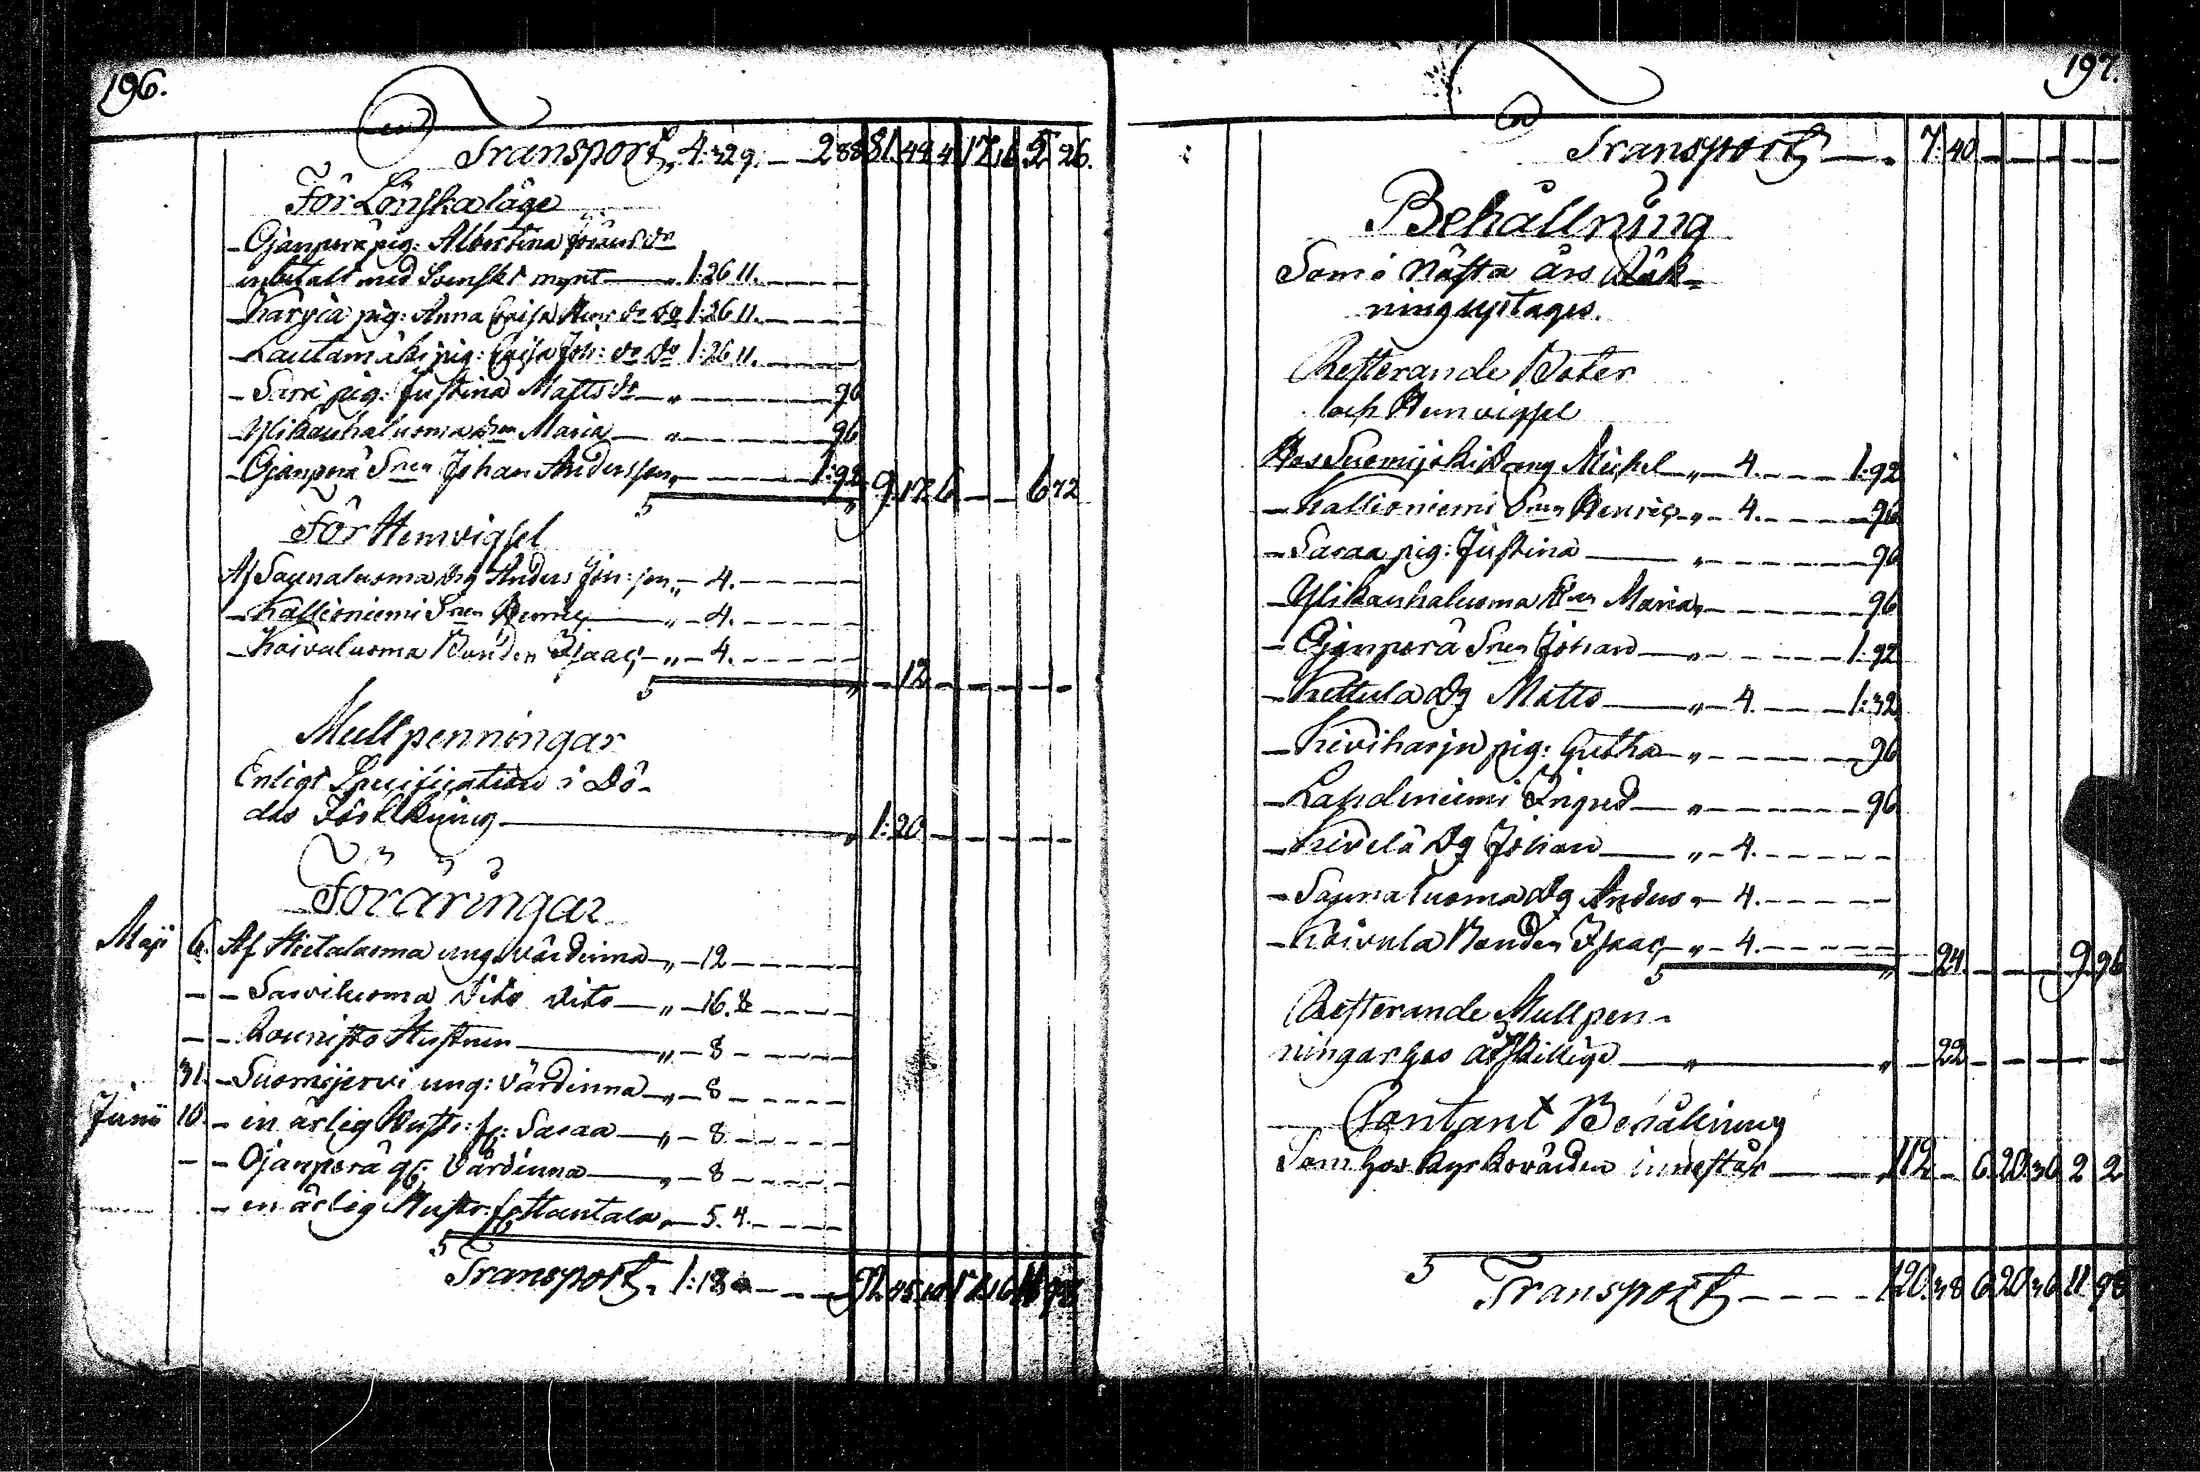 196.
Transport, 4:29. — 288 81. 44 4 17 16 5 26.
För Lönskaläge
– Ojanperä pig: Albertina dr
inbetalt med Svenskt mynt — " 1:26 11.
– Karjia pig: Anna Caisa Henr dr do 1:26 11.
– Lautamäki pig: Caisa Joh: dr do 1:26 11.
– Sara pig: Justina Matts dr — " — 96
– Ylikauhaluoma Dren Maria — " — 96
– Ojanperä Snen Johan Andersson " — 1:92
5 " 9. 17 6 — — 6 72
För Hemvigsel
Af Saunaluoma Drg Anders Joh:son " – 4.
– Kallioniemi Snen Henric — " – 4.
– Koivuluoma Bonden Isaac — " – 4.
5 " – 12 – – – – –
Mullpenningar
Enligt Specification i Dö-
das Förteckning — " 1:20 – – – – –
Föräringar
Maji 6. Af Hietaluoma unga värdinna — " – 12
– – Sarviluoma dito dito — " – 16. 8
– – Hustrun — " – 8
31. – Suomijervi ung: värdinna — " – 8
Junii 10. – en ärlig Hustr: fr: Saraa — " – 8
– – Ojanperä gf: Värdinna — " – 8
– en ärlig Hustr: fr Hautala " – 5. 4.
5
Transport " 1:18 — 92. 45 10 17 16 11 98
197.
Transport — " 7:40 – – – – –
Behållning
Som i Nästa års Räk-
ning uptages.
Resterande Böter
och Hemvigsel
Hos Suomijoki Dreng Michel " – 4. — 1:92
– Kallioniemi Snen Henric " – 4. — 96
– Saraa pig: Justina — " — 96
– Ylikauhaluoma Dren Maria " — 96
– Ojanperä Snen Johan — " — 1:92
– Kettula Dg Matts — " – 4. — 1:32
– Kiviharju pig: Gretha — " — 96
– Lahdeniemi Ingred — " — 96
– Kivelä Dg Johan — " – 4.
– Saunaluoma Dg Anders " – 4.
– Koivula Bonden Isaac " – 4.
5 " – 24. – – – 9 96
Resterande Mullpen-
ningar hos åtskillige — " — " – 22 – – – – –
Contant Behållning
Som hos Kyrkovärden innestår — " 112 – 6 20 36 2 2
5
Transport — 120. 38 6 20 36 11 98